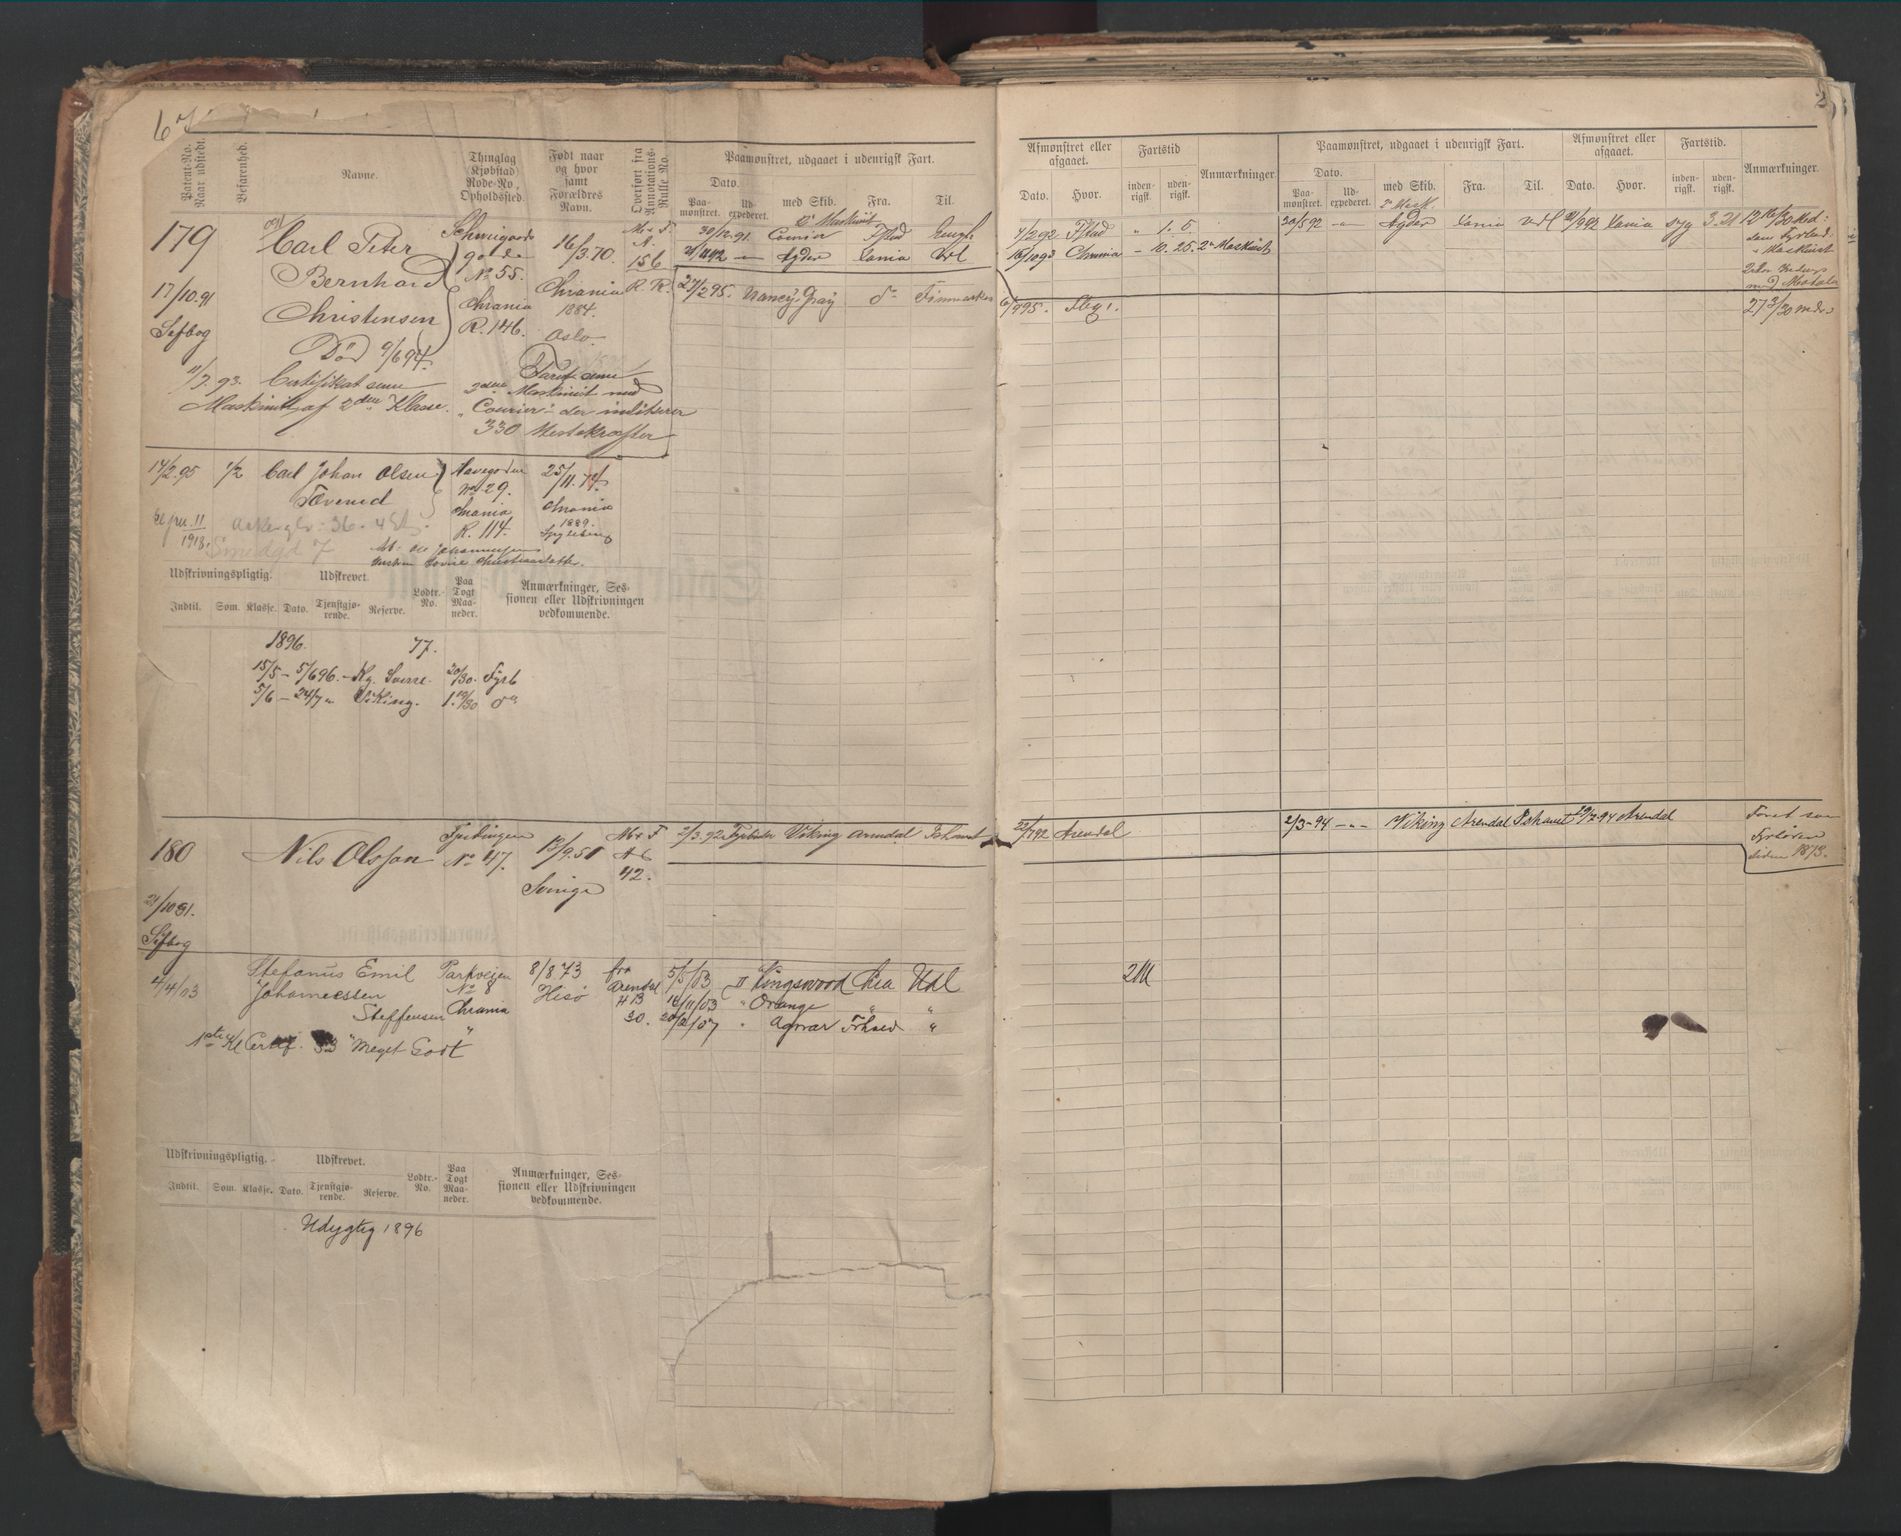 67
Patent-No. Naar udstedt.
Befarenhed.
Navne.
Thinglag Kjøbstad Rode-No., Opholdssted.
Født naar og hvor samt Forældres Navn.
Overført fra Annotations-Rulle No.
Paamønstret, udgaaet i udenrigsk Fart.
Dato.
Paamønstret. Udexpederet. med Skib. Fra. Til.
179
Carl Peter
Bernhard
Christensen
Død 9/6 94.
17/10.91
Sefbog
11/7.93. Certifikat som
Maskinist af 2den Klasse.
Schweigaards
gade
No 55.
Chrania
R. 146.
16/3.70.
Chrania
1884.
Oslo.
M & F
A.
156
R. R.
2den Maskinist med
"Courier" der indiserer
330 Hestekræfter
30/12.91 Courier
Agder
27/2 95. Nancy-Gray do Finmarken
14/2.95 1/2 Carl Johan Olsen
Tævernd
Havegaden
No 29.
Chrania
R. 114.
25/11.74.
Chrania
1889.
Spydeberg
11
1918.
Akersgt. 36. 4 Etg.
Smedgd 7
Udskrivningspligtig. Udskrevet. Lodtr.-No. Paa Togt Maaneder. Anmærkninger, Sessionen eller Udskrivningen vedkommende.
Indtil. Som. Klasse. Dato. Tjenstgjørende. Reserve.
1896. 77.
15/5 - 5/6 96. - Kg. Sverre. 20/30. Fyrb
5/6 - 24/7 " Viking. 1.19/30 do
180 Nils Olsson No 47. 13/9.51
Svinge
M & F
A 6
42.
2/3.92 Fyrbøder Viking Arendal Ishavet
21/10 91.
Sefbog
4/4/03 Stefanus Emil
Johannessen
Steffensen
Parkvejen
No 8
Chrania
8/8 73
Hisø
fra
Arendal
H B
30.
5/5/03 II Kingswood Kra Udl
16/11/03 " Orange " "
20/2/07 " Agnar Frhald "
1ste Kl Certif. 53 "Meget Godt"
Udskrivningspligtig. Udskrevet. Lodtr.-No. Paa Togt Maaneder. Anmærkninger, Sessionen eller Udskrivningen vedkommende.
Indtil. Som. Klasse. Dato. Tjenstgjørende. Reserve.
Udygtig 1896
Afmønstret eller afgaaet. Fartstid Anmærkninger
Dato. Hvor. indenrigsk. udenrigsk.
Paamønstret, udgaaet i udenrigsk Fart.
Dato.
Paamønstret. Udexpederet. med Skib. Fra. Til.
Afmønstret eller afgaaet. Fartstid.
Dato. Hvor. indenrigsk. udenrigsk.
Anmærkninger.
4/2 92 Fstad " 1. 5.
16/10 93 Chrania - 10. 25. 2n Maskinist
2n Mask.
30/5 92 - " - Agder Vania Udl Vania syg 3. 21
6/9 95. Fbg.
27 3/30 mdr.
22/7 92 Arendal
2/3-94 - " - Viking Arendal Ishavet 29/7 94 Arendal
Faret som
Fyrbøder
siden 1873.
2 M